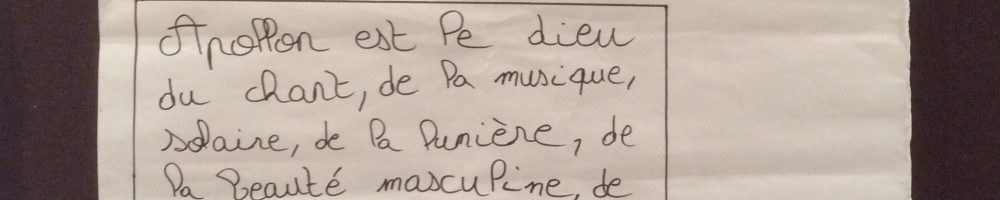 Apollon est le dieu
du chant, de la musique,
solaire, de la lumière, de
la beauté masculine, de